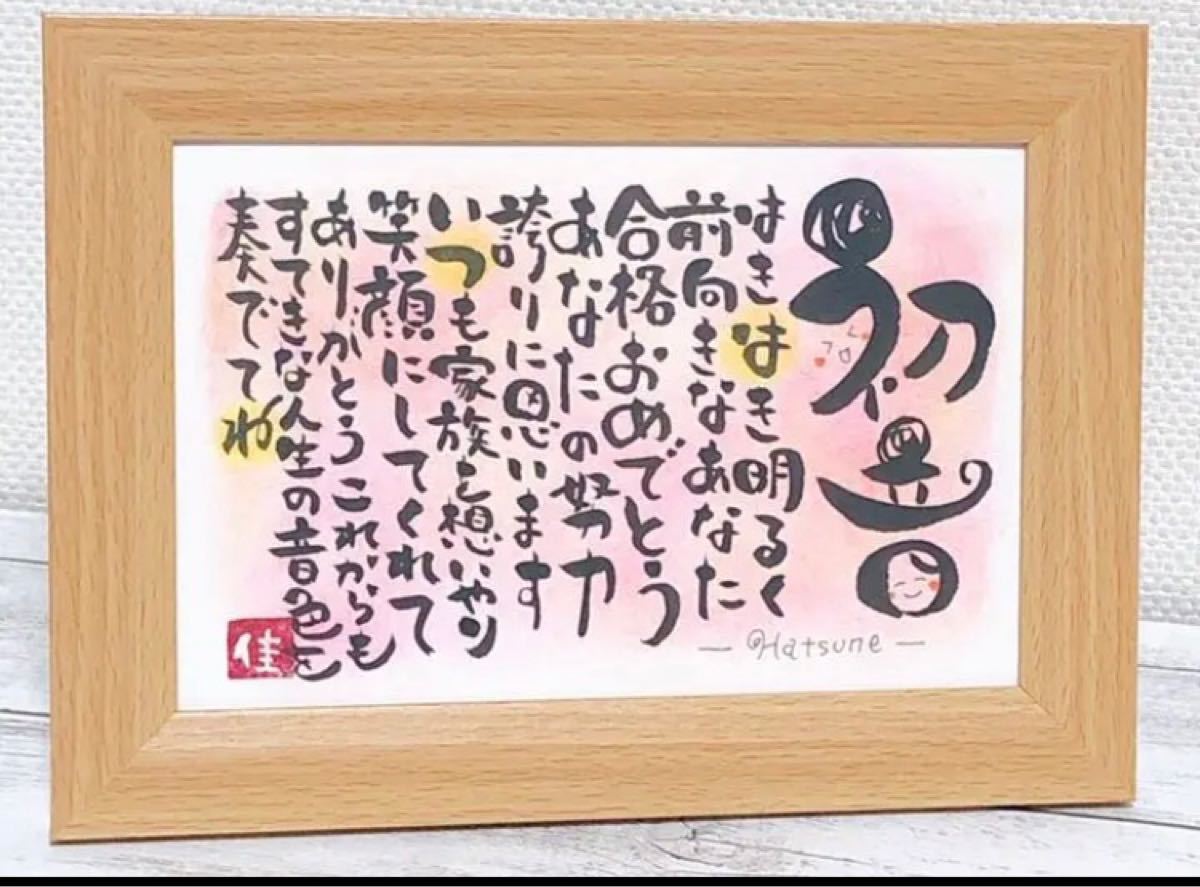 初音
はきはき明るく
前向きなあなた
合格おめでとう
あなたの努力
誇りに思います
いつも家族を想いやり
笑顔にしてくれて
ありがとうこれからも
すてきな人生の音色を
奏でてね
— Hatsune —
佳